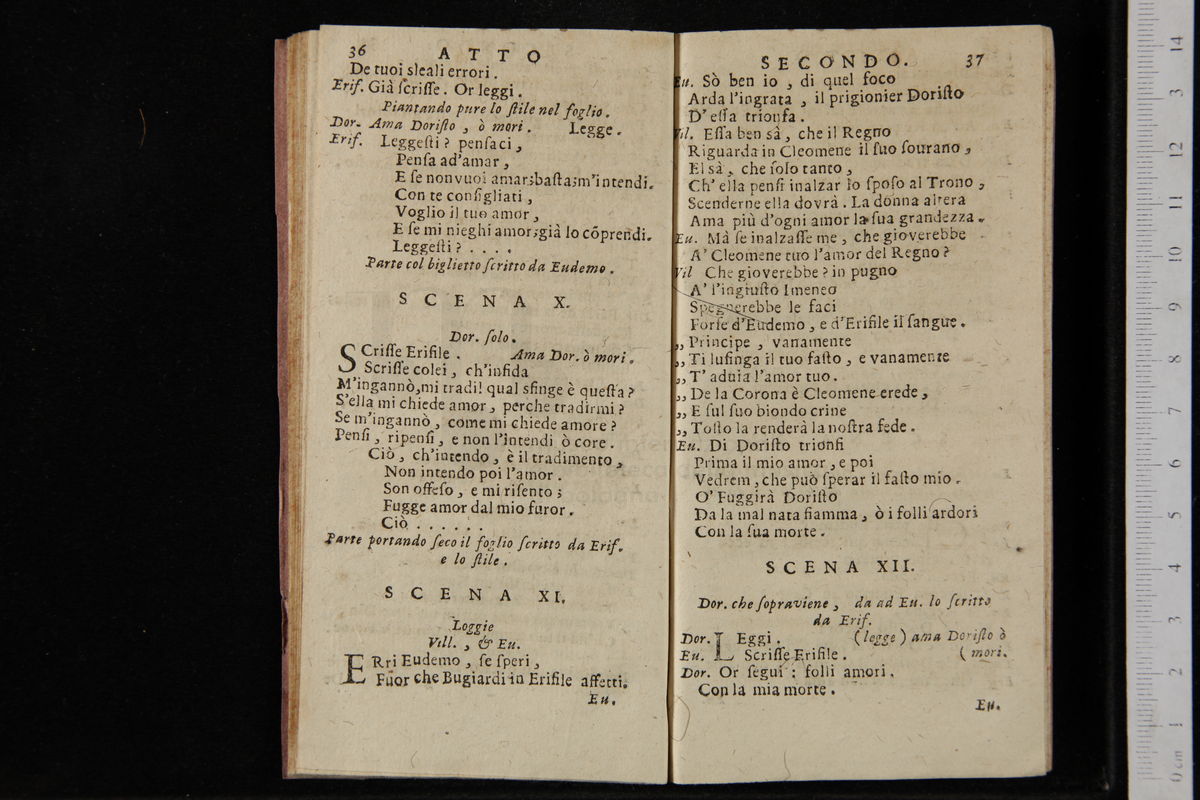 36 ATTO
De tuoi sleali errori.
Erif. Già ſcriſſe. Or leggi.
Piantando pure lo ſtile nel foglio.
Dor. Ama Doriſto, ò mori. Legge.
Erif. Leggeſti? penſaci,
Penſa ad'amar,
E ſe non vuoi amar;baſta;m'intendi.
Con te conſigliati,
Voglio il tuo amor,
E ſe mi nieghi amor;già lo cõprendi.
Leggeſti? . . . .
Parte col biglietto ſcritto da Eudemo.
SCENA X.
Dor. ſolo.
SCriſſe Erifile. Ama Dor. ò mori.
Scriſſe colei, ch'infida
M'ingannò,mi tradì! qual sfinge è queſta?
S'ella mi chiede amor, perche tradirmi?
Se m'ingannò, come mi chiede amore?
Penſi, ripenſi, e non l'intendi ò core.
Ciò, ch'intendo, è il tradimento,
Non intendo poi l'amor.
Son offeſo, e mi riſento;
Fugge amor dal mio furor.
Ciò . . . . . .
Parte portando ſeco il foglio ſcritto da Erif.
e lo ſtile.
SCENA XI.
Loggie
Vill., & Eu.
ERri Eudemo, ſe ſperi,
Fuor che Bugiardi in Erifile affetti.
Eu.
SECONDO. 37
Eu. Sò ben io, di quel foco
Arda l'ingrata, il prigionier Doriſto
D'eſſa trionfa.
Vil. Eſſa ben sà, che il Regno
Riguarda in Cleomene il ſuo ſourano,
El sà, che ſolo tanto,
Ch'ella penſi inalzar lo ſpoſo al Trono,
Scenderne ella dovrà. La donna altera
Ama più d'ogni amor la ſua grandezza.
Eu. Mà ſe inalzaſſe me, che gioverebbe
A' Cleomene tuo l'amor del Regno?
Vil Che gioverebbe? in pugno
A' l'ingiuſto Imeneo
Spegnerebbe le faci
Forſe d'Eudemo, e d'Erifile il ſangue.
,, Principe, vanamente
,, Ti luſinga il tuo faſto, e vanamente
,, T'aduia l'amor tuo.
,, De la Corona è Cleomene erede,
,, E ſul ſuo biondo crine
,, Toſto la renderà la noſtra fede.
Eu. Di Doriſto trionfi
Prima il mio amor, e poi
Vedrem, che può ſperar il faſto mio.
O' Fuggirà Doriſto
Da la mal nata fiamma, ò i folli ardori
Con la ſua morte.
SCENA XII.
Dor. che ſopraviene, da ad Eu. lo ſcritto
da Erif.
Dor. LEggi. (legge) ama Doriſto ò
Eu. Scriſſe Erifile. (mori.
Dor. Or ſegui: folli amori.
Con la mia morte.
Eu.